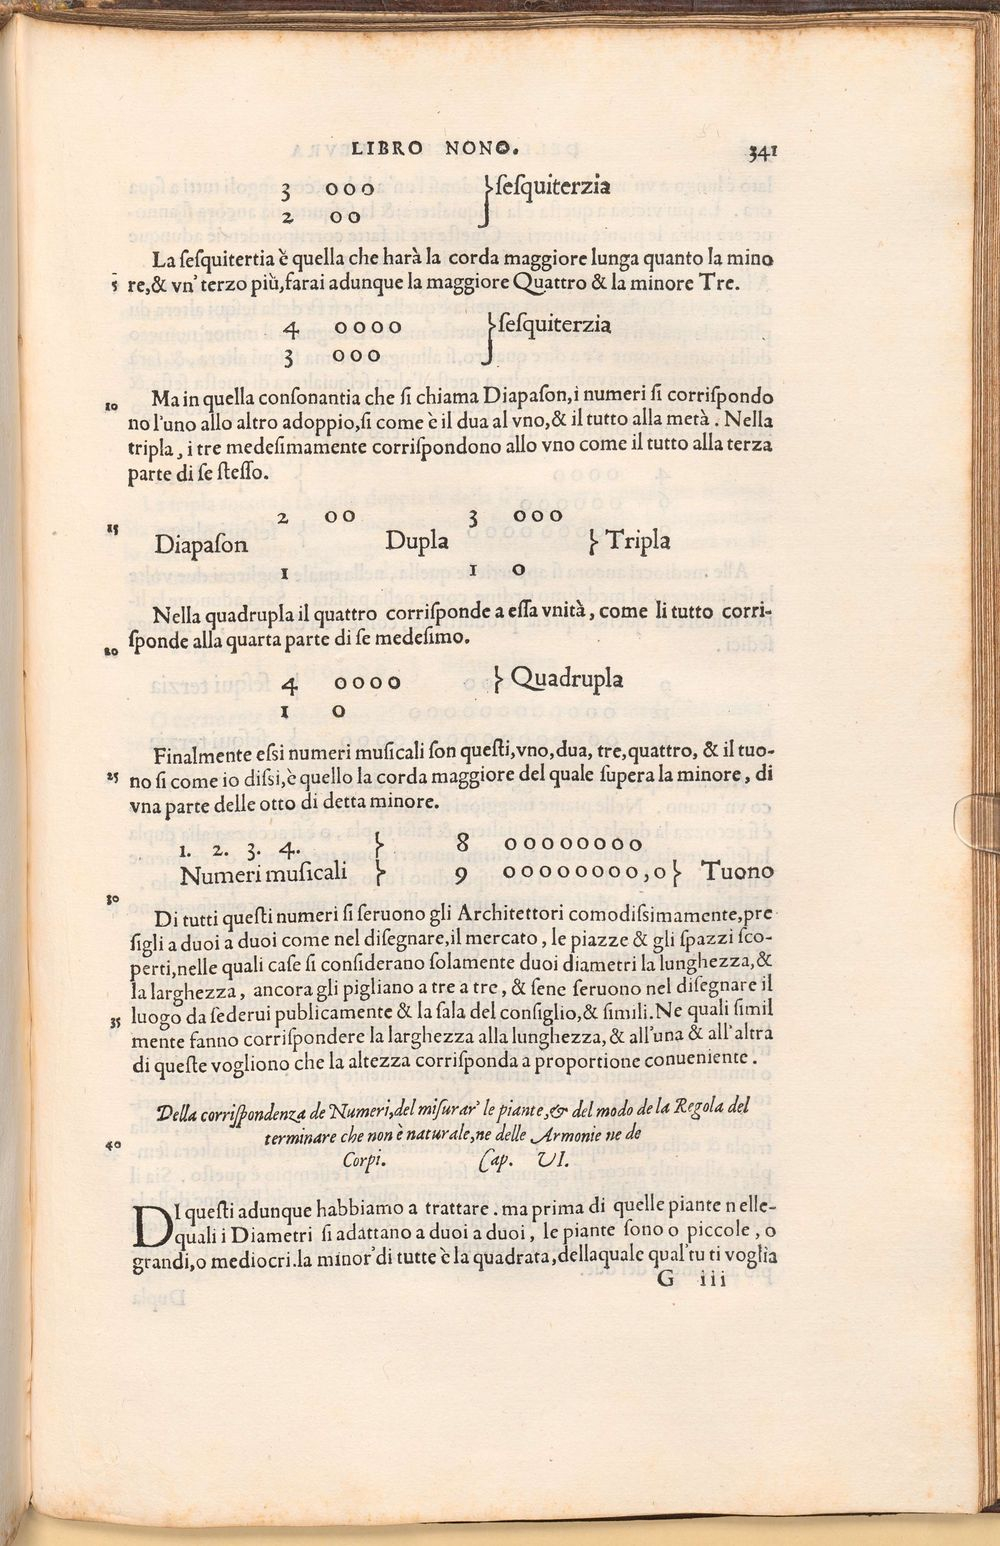 LIBRO NONO. 341
3 ooo }ſeſquiterzia
2 oo
La ſeſquitertia è quella che harà la corda maggiore lunga quanto la mino
5 re,& vn' terzo più,farai adunque la maggiore Quattro & la minore Tre.
4 oooo }ſeſquiterzia
3 ooo
10 Ma in quella conſonantia che ſi chiama Diapaſon,i numeri ſi corriſpondo
no l'uno allo altro adoppio,ſi come è il dua al vno,& il tutto alla metà. Nella
tripla, i tre medeſimamente corriſpondono allo vno come il tutto alla terza
parte di ſe ſteſſo.
2 oo 3 ooo
15 Diapaſon Dupla } Tripla
1 1 o
Nella quadrupla il quattro corriſponde a eſſa vnità, come li tutto corri-
20 ſponde alla quarta parte di ſe medeſimo.
4 oooo } Quadrupla
1 o
Finalmente eſsi numeri muſicali ſon queſti,vno,dua, tre,quattro, & il tuo-
25 no ſi come io diſsi,è quello la corda maggiore del quale ſupera la minore, di
vna parte delle otto di detta minore.
1. 2. 3. 4. } 8 oooooooo
Numeri muſicali } 9 oooooooo,o} Tuono
30 Di tutti queſti numeri ſi ſeruono gli Architettori comodiſsimamente,pre
ſigli a duoi a duoi come nel diſegnare,il mercato, le piazze & gli ſpazzi ſco-
perti,nelle quali caſe ſi conſiderano ſolamente duoi diametri la lunghezza,&
la larghezza, ancora gli pigliano a tre a tre, & ſene ſeruono nel diſegnare il
35 luogo da ſederui publicamente & la ſala del conſiglio,& ſimili. Ne quali ſimil
mente fanno corriſpondere la larghezza alla lunghezza,& all'una & all'altra
di queſte vogliono che la altezza corriſponda a proportione conueniente.
Della corriſpondenza de Numeri,del miſurar' le piante,& del modo de la Regola del
40 terminare che non è naturale,ne delle Armonie ne de
Corpi. Cap. VI.
DI queſti adunque habbiamo a trattare. ma prima di quelle piante nelle-
quali i Diametri ſi adattano a duoi a duoi, le piante ſono o piccole, o
grandi,o mediocri.la minor' di tutte è la quadrata,dellaquale qual'tu ti voglia
G iii